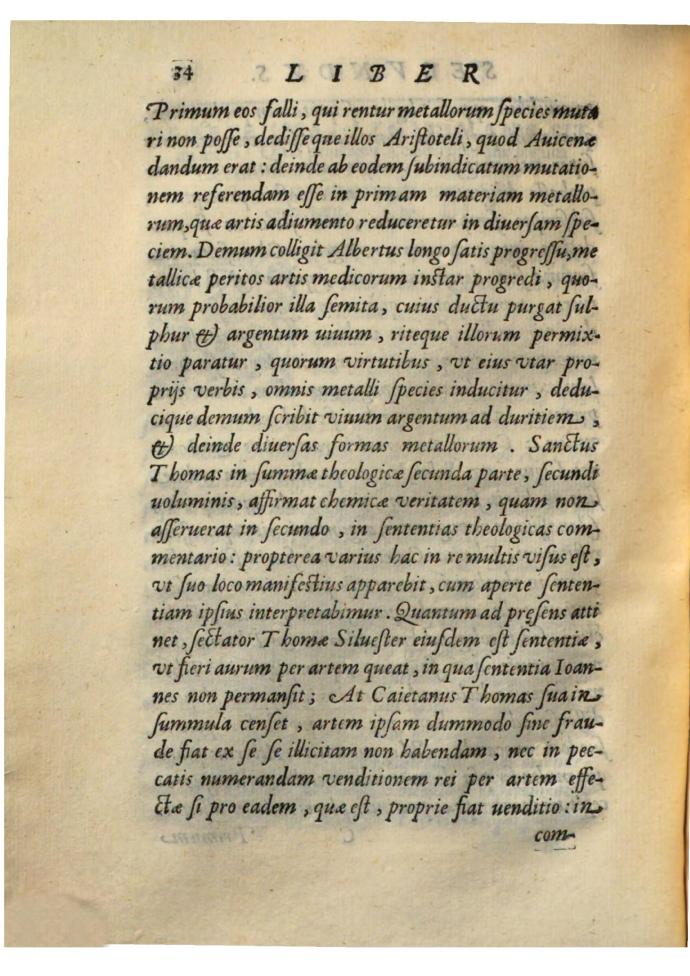 34 LIBER
Primum eos falli, qui rentur metallorum species muta
ri non posse, dedisseque illos Aristoteli, quod Auicenæ
dandum erat: deinde ab eodem subindicatum mutatio-
nem referendam esse in primam materiam metallo-
rum, quæ artis adiumento reduceretur in diuersam spe-
ciem. Demum colligit Albertus longo satis progressu, me
tallicæ peritos artis medicorum instar progredi, quo-
rum probabilior illa semita, cuius ductu purgat sul-
phur & argentum uiuum, riteque illorum permix-
tio paratur, quorum virtutibus, vt eius vtar pro-
prijs verbis, omnis metalli species inducitur, dedu-
cique demum scribit viuum argentum ad duritiem,
& deinde diuersas formas metallorum. Sanctus
Thomas in summæ theologicæ secunda parte, secundi
uoluminis, affirmat chemicæ veritatem, quam non
asseruerat in secundo, in sententias theologicas com-
mentario: propterea varius hac in re multis visus est,
vt suo loco manifestius apparebit, cum aperte senten-
tiam ipsius interpretabimur. Quantum ad pręsens atti
net, sectator Thomæ Siluester eiusdem est sententiæ,
vt fieri aurum per artem queat, in qua sententia Ioan-
nes non permansit; At Caietanus Thomas sua in
summula censet, artem ipsam dummodo sine frau-
de fiat ex se se illicitam non habendam, nec in pec-
catis numerandam venditionem rei per artem effe-
ctæ si pro eadem, quæ est, proprie fiat uenditio: in
com-